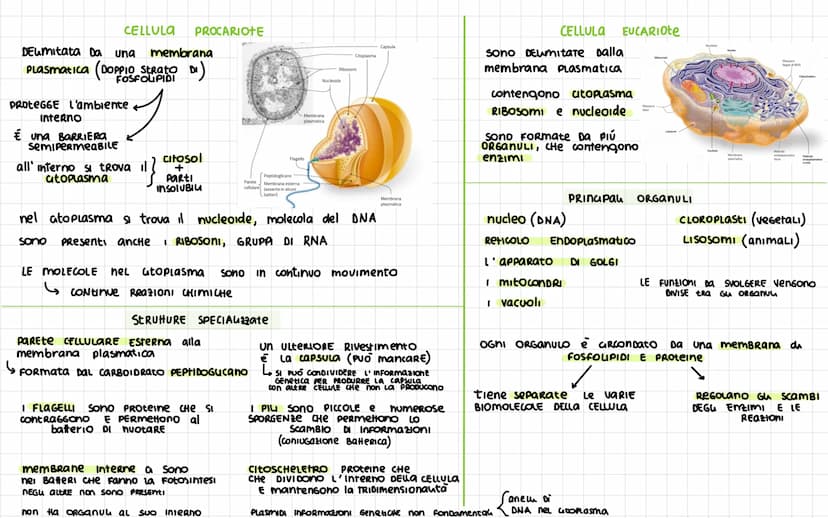 CELLULA PROCARIOTE
DELIMITATA DA UNA membrana
PLASMATICA (DOPPIO STRATO DI
FOSFOLIPIDI)
PROTEGGE L'AMBIENTE
INTERNO
È UNA BARRIERA
SEMIPERMEABILE
all'INTERNO SI TROVA IL
CITOPLASMA
CITOSOL
+
PARTI
INSOLUBILI
Capsula
Citoplasma
Ribosomi
Nucleoide
Membrana
plasmatica
Flagello
Parete
cellulare
Peptidoglicano
Membrana esterna
(assente in alcuni
batteri)
Membrana
plasmatica
nel citoplasma si trova il nucleoide, molecola del DNA
SONO PRESENTI ANCHE I RIBOSONI, GRUPPI DI RNA
LE MOLECOLE NEL CITOPLASMA SONO IN CONTINUO MOVIMENTO
CONTINUE REAZIONI CHIMICHE
STRUTTURE SPECIALIZZATE
PARETE CELLULARE ESTERNA alla
membrana plasmatica
FORMATA DAL CARBOIDRATO PEPTIDOGLICANO
I FLAGELLI SONO PROTEINE CHE SI
CONTRAGGONO E PERMETTONO AL
BATTERIO DI NUOTARE
MEMBRANE INTERNE CI SONO
NEI BATTERI CHE FANNO LA FOTOSINTESI
NEGLI ALTRE NON SONO PRESENTI
NON HA ORGANULI AL SUO INTERNO
UN ULTERIORE RIVESTIMENTO
È LA CAPSULA (PUÒ MANCARE)
SI PUÒ CONDIVIDERE L'INFORMAZIONE
GENETICA PER PRODURRE LA CAPSULA
CON ALTRE CELLULE CHE NON LA PRODUCONO
I PILI SONO PICCOLE E NUMEROSE
SPORGENZE CHE PERMETTONO LO
SCAMBIO DI INFORMAZIONI
(CONIUGAZIONE BATTERICA)
CITOSCHELETRO PROTEINE CHE
CHE DIVIDONO L'INTERNO DELLA CELLULA
E MANTENGONO LA TRIDIMENSIONALITÀ
PLASMIDI INFORMAZIONI GENETICHE NON FONDAMENTALI
ANELLI DI
DNA NEL CITOPLASMA
CELLULA EUCARIOTE
SONO DELIMITATE DALLA
MEMBRANA PLASMATICA
CONTENGONO CITOPLASMA
RIBOSOMI E NUCLEOIDE
SONO FORMATE DA PIÙ
ORGANULI, CHE CONTENGONO
ENZIMI
PRINCIPALI ORGANULI
NUCLEO (DNA)
RETICOLO ENDOPLASMATICO
L'APPARATO DI GOLGI
I MITOCONDRI
I VACUOLI
CLOROPLASTI (VEGETALI)
LISOSOMI (ANIMALI)
LE FUNZIONI DA SVOLGERE VENGONO
DIVISE TRA GLI ORGANULI
OGNI ORGANULO È CIRCONDATO DA UNA MEMBRANA di
FOSFOLIPIDI E PROTEINE
TIENE SEPARATE LE VARIE
BIOMOLECOLE DELLA CELLULA
REGOLANO GLI SCAMBI
DEGLI ENZIMI E LE
REAZIONI